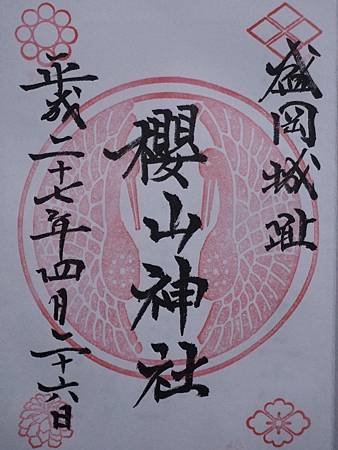 盛岡城趾
櫻山神社
平成二十七年四月二十六日